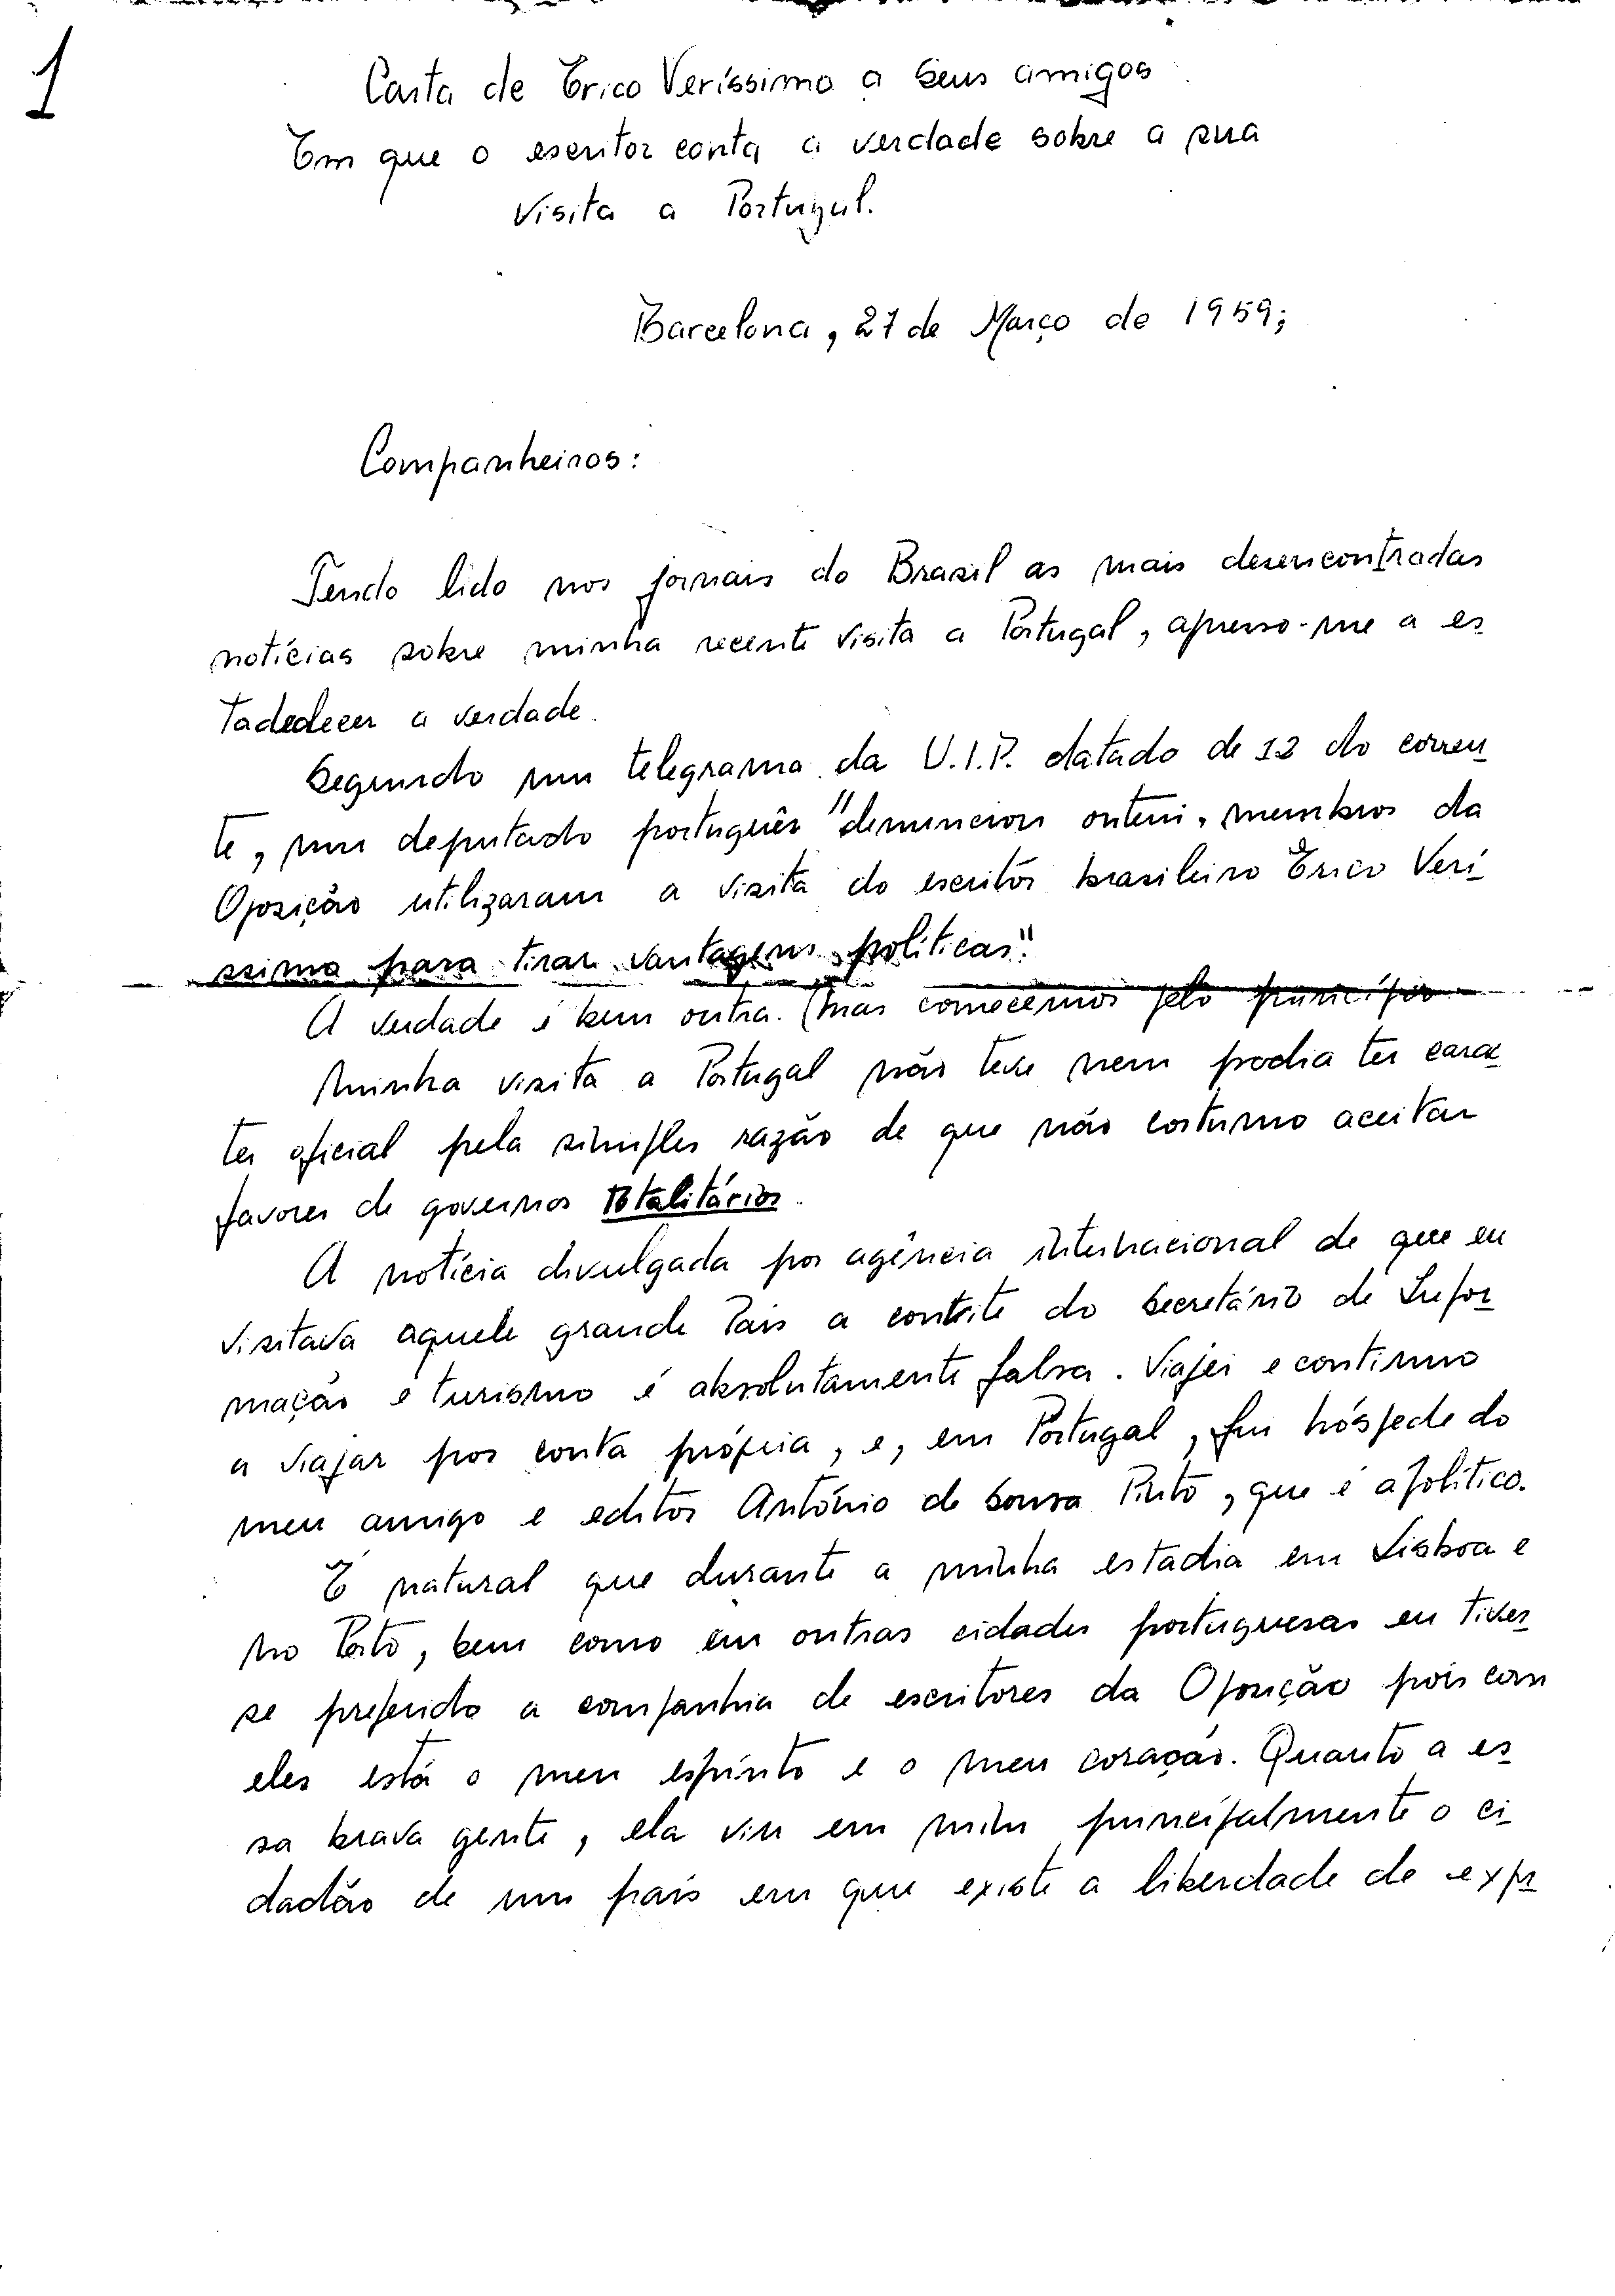 1
Carta de Erico Veríssimo a Seus amigos
Em que o escritor conta a verdade sobre a sua
Visita a Portugal.
Barcelona, 27 de Março de 1959;
Companheiros:
Tendo lido nos jornais do Brasil as mais desencontradas
notícias sobre minha recente visita a Portugal, apresso-me a es
Tadedecer a verdade.
Segundo um telegrama da U.I.P. datado de 12 do corren
te, um deputado português "denunciou ontem, membros da
Oposição utilizaram a visita do escritor brasileiro Erico Verí
ssimo para tirar vantagens políticas".
A verdade é bem outra. (mas comecemos pelo princípio
Minha visita a Portugal não teve nem podia ter carac
ter oficial pela simples razão de que não costumo aceitar
favores de governos Totalitários.
A notícia divulgada por agência internacional de que eu
visitava aquele grande País a convite do Secretário de Infor
mação e turismo é absolutamente falsa. Viajei e continuo
a viajar por conta própria, e, em Portugal, fui hóspede do
meu amigo e editor António de Sousa Pinto, que é apolítico.
É natural que durante a minha estadia em Lisboa e
no Porto, bem como em outras cidades portuguesas eu tives
se preferido a companhia de escritores da Oposição pois com
eles está o meu espírito e o meu coração. Quanto a es
sa brava gente, ela viu em mim principalmente o ci
dadão de um país em que existe a liberdade de expr